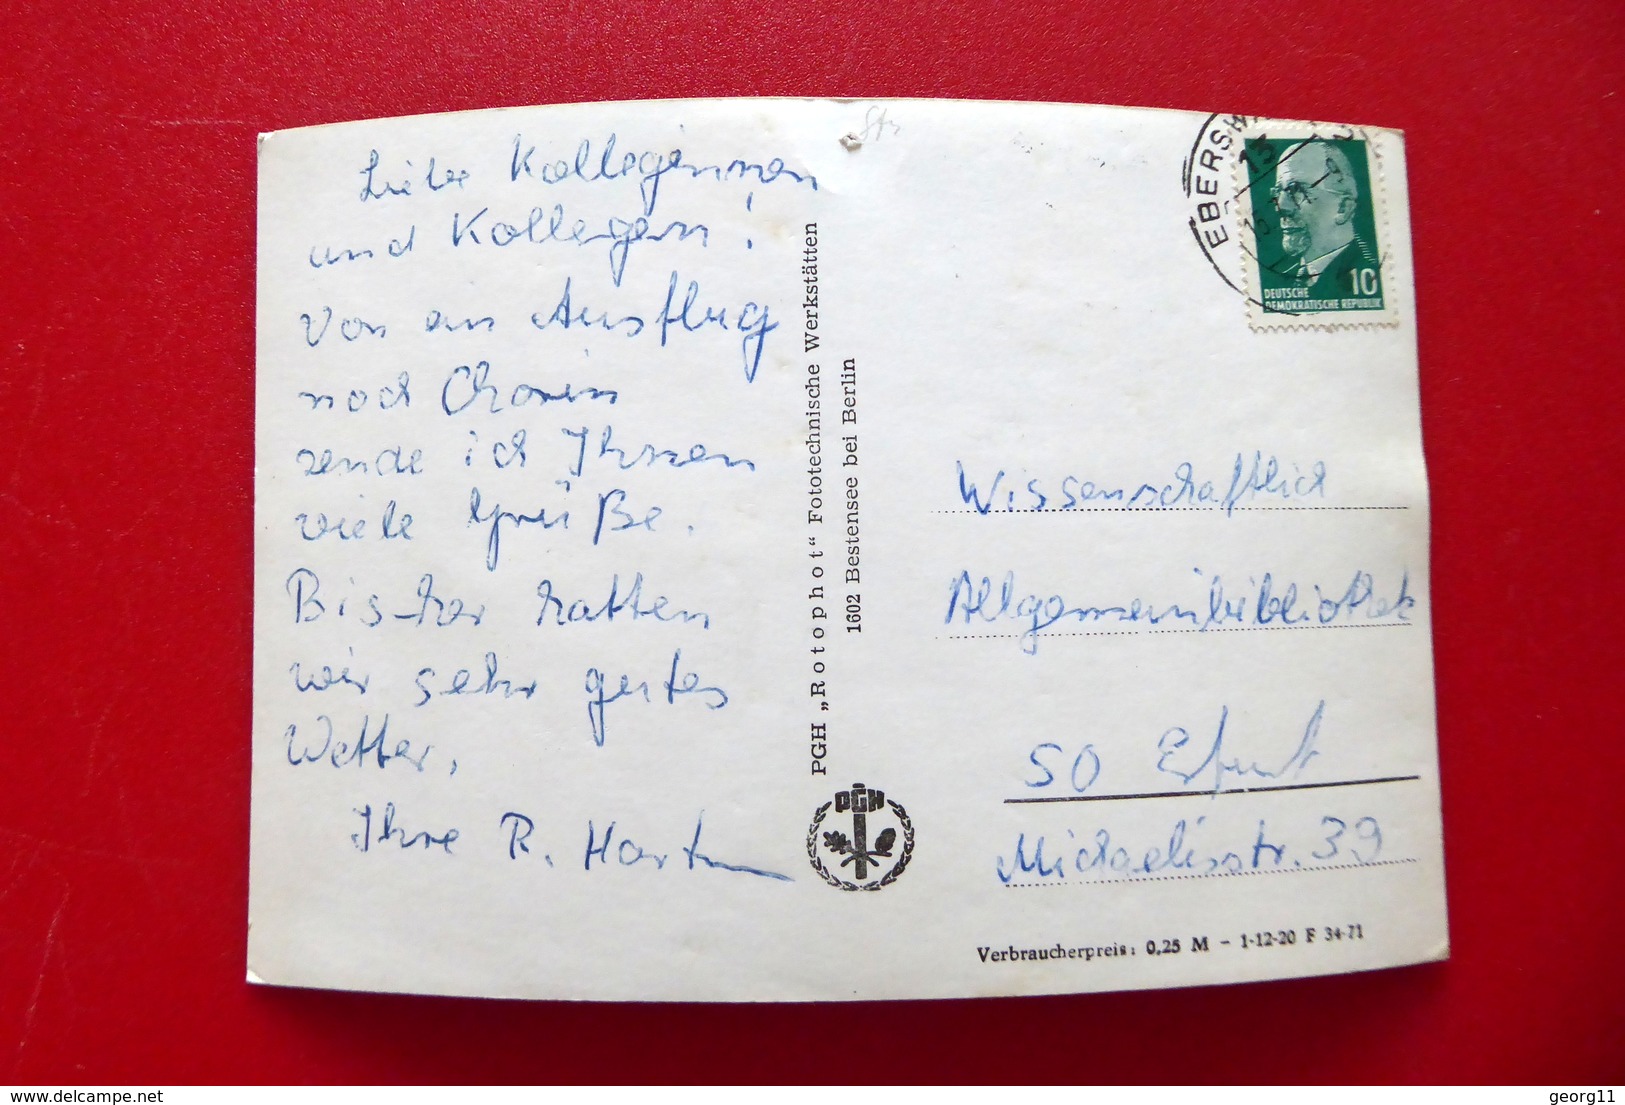 Liebe Kolleginnen
und Kollegen!
Von an Ausflug
nach Chorin
sende ich Ihnen
viele Grüße.
Bisher hatten
wir sehr gutes
Wetter.
Ihre R. Hartm
PGH „Rotophot“ Fototechnische Werkstätten
1602 Bestensee bei Berlin
PGH
DEUTSCHE
DEMOKRATISCHE REPUBLIK
10
Wissenschaftlich
Allgemeinbibliothek
50 Erfurt
Michaelisstr. 39
Verbraucherpreis: 0,25 M – 1-12-20 F 34-71
delcampe.net
georg11